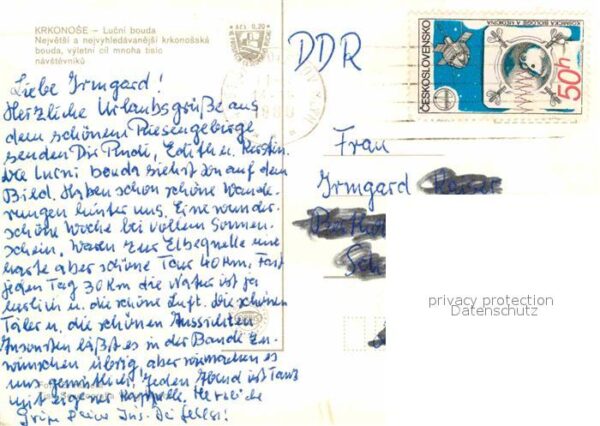 KRKONOŠE – Luční bouda
Největší a nejvyhledávanější krkonošská
bouda, výletní cíl mnoha tisíc
návštěvníků
Liebe Irmgard!
Herzliche Urlaubsgrüße aus
dem schönen Riesengebirge
senden Dir Rudi, Edith u. Kerstin.
Die Luční bouda siehst Du auf dem
Bild. Haben schon schöne Wande-
rungen hinter uns. Eine wunder-
schöne Woche bei vollem Sonnen-
schein. Waren zur Elbequelle eine
harte aber schöne Tour 40 Km. Fast
jeden Tag 30 Km die Natur ist ja
herrlich u. die schöne Luft. Die schönen
Täler u. die schönen Aussichten
Ansonsten läßt es in der Baude zu
wünschen übrig, aber wir machen es
uns gemütlich. Jeden Abend ist Tanz
mit eigener Kappelle. Herzliche
Grüße
DDR
ČESKOSLOVENSKO
50h
Frau
Irmgard
privacy protection
Datenschutz